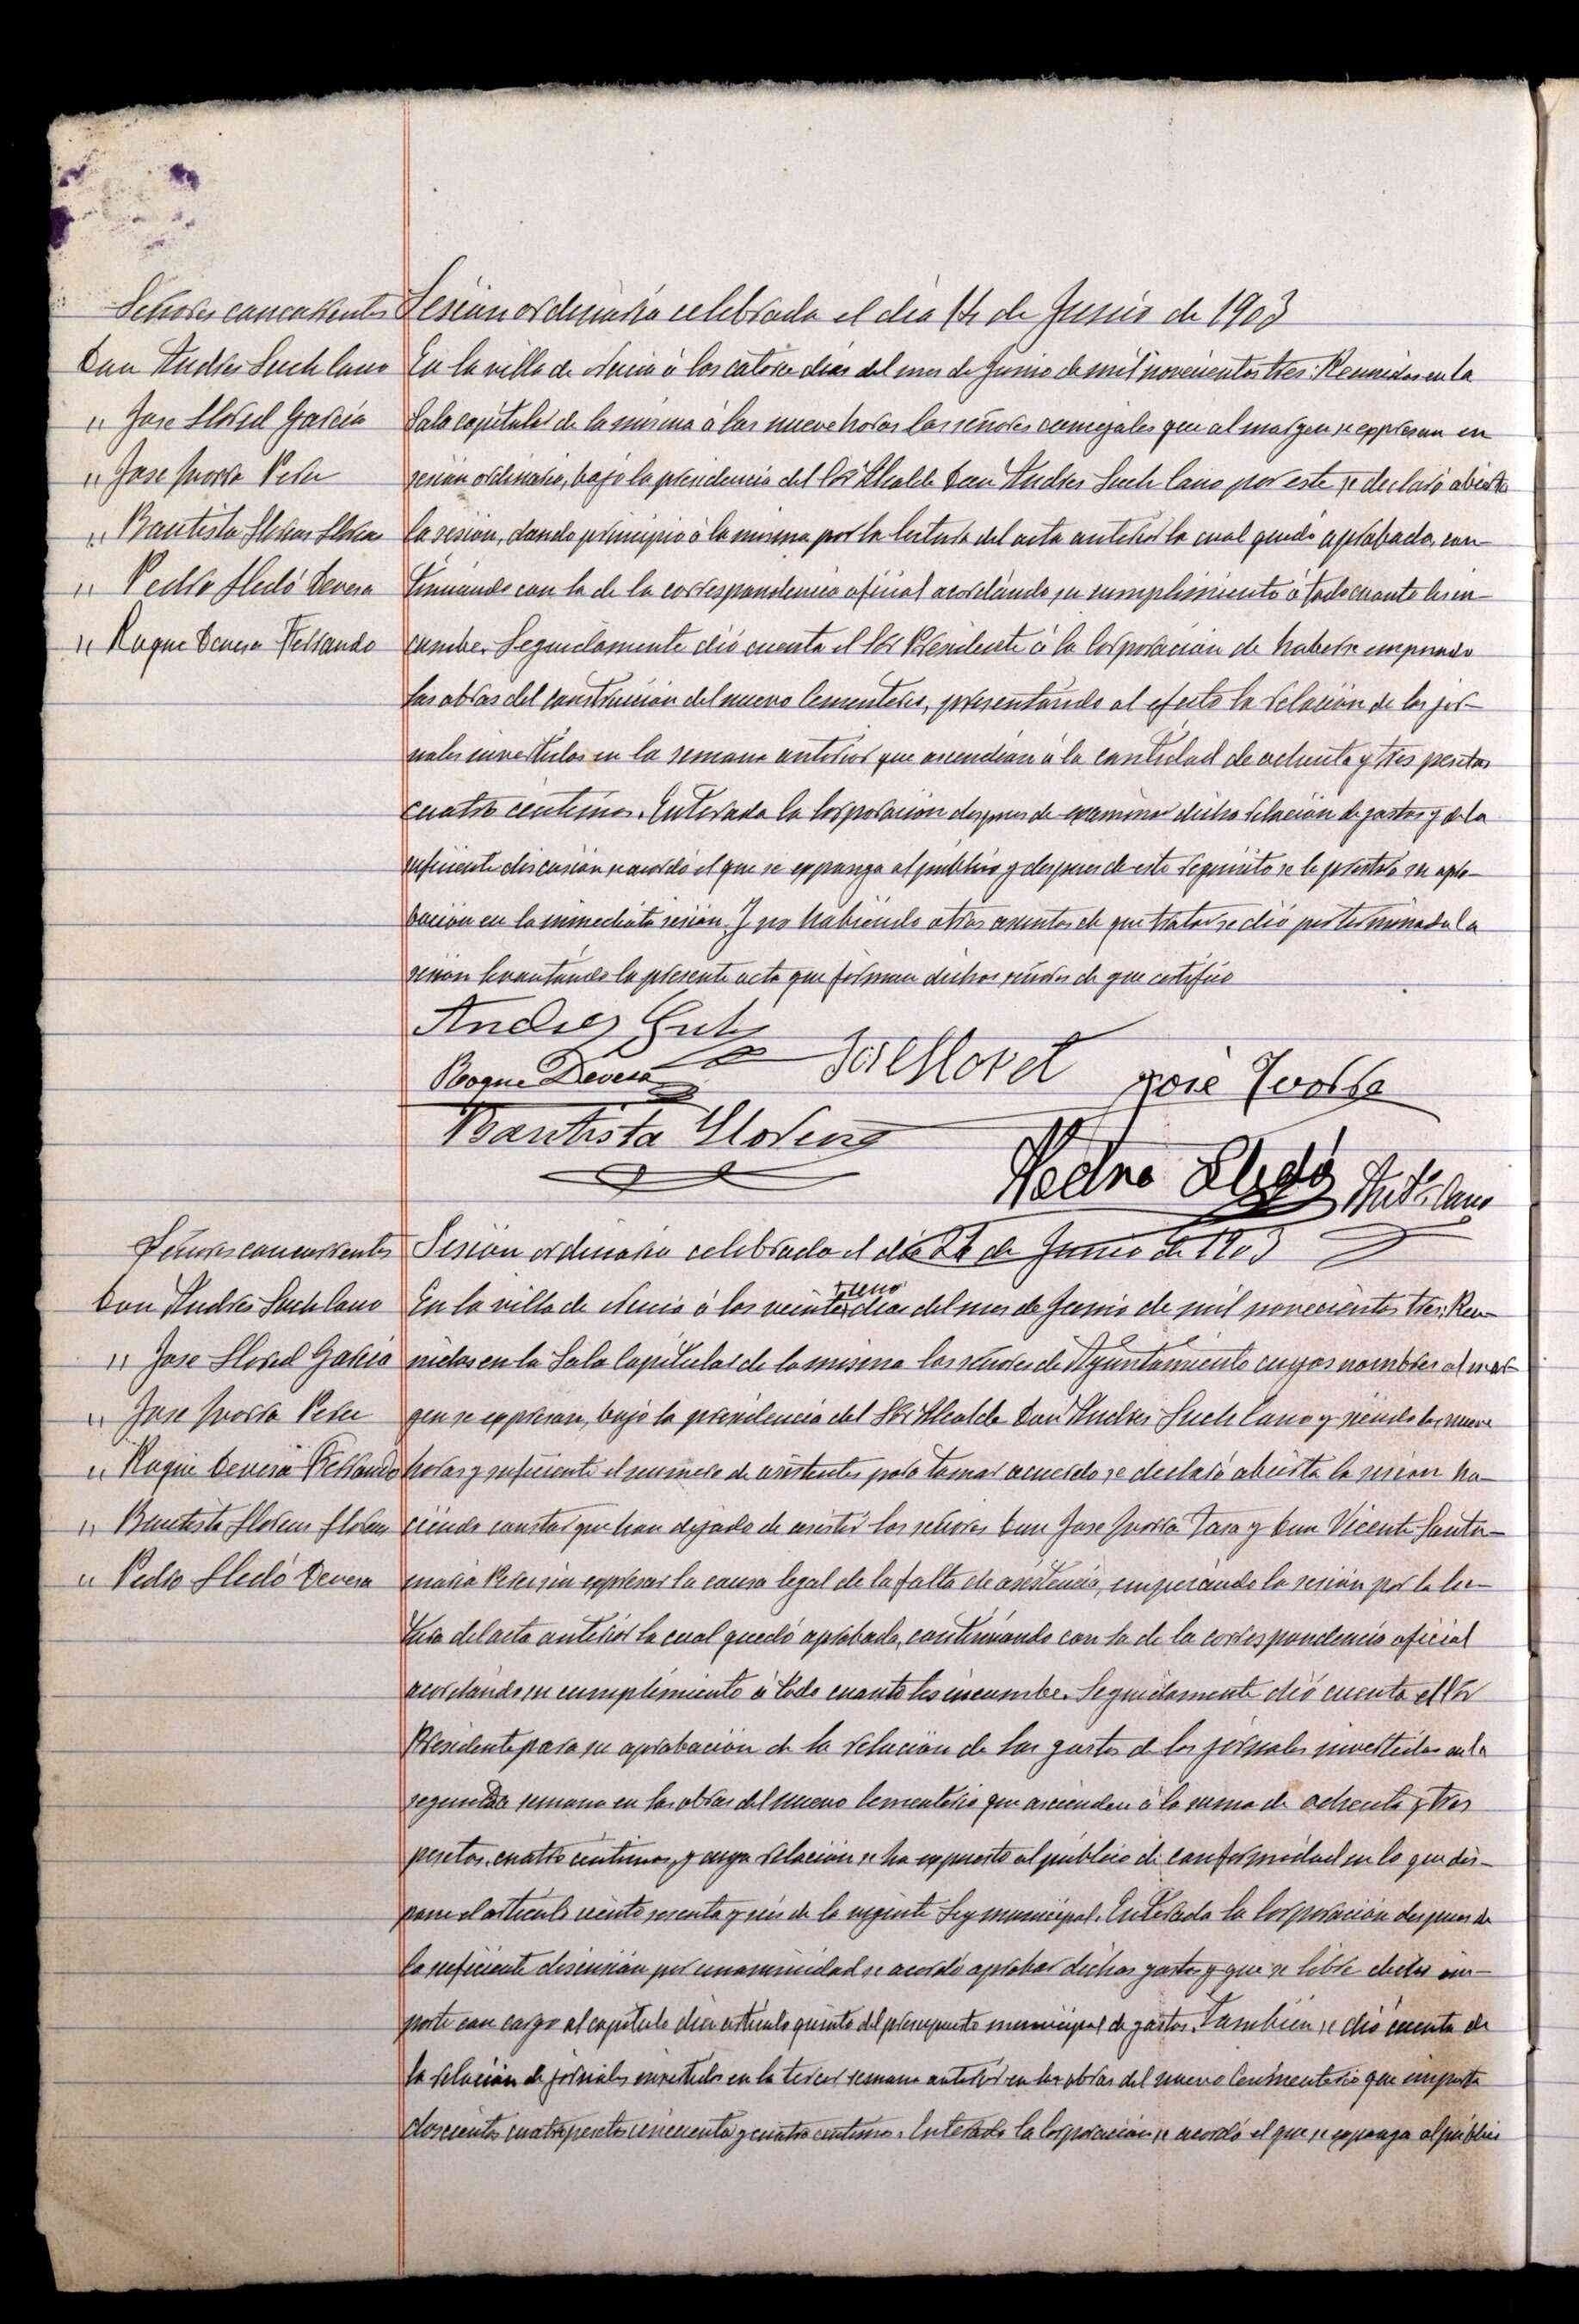 Señores concurrentes
Don Andres Such Cano
" Jose Lloret Garcia
" Jose Ivorra Perez
" Bautista Llorens Llorens
" Pedro Lledó Devesa
" Roque Devesa Ferrando
Sesión ordinaria celebrada el dia 14 de Junio de 1903
En la villa de Nucia á los catorce dias del mes de Junio de mil novecientos tres: Reunidos en la
Sala capitular de la misma á las nueve horas los señores concejales que al margen se expresan en
sesión ordinaria, bajo la presidencia del Sor Alcalde Don Andres Such Cano por este se declaró abierta
la sesión, dando principio á la misma por la lectura del acta anterior la cual quedó aprobada, con-
tinuando con la de la correspondencia oficial acordando su cumplimiento á todo cuanto les in-
cumbe. Seguidamente dió cuenta el Sor Presidente á la Corporación de haberse empezado
las obras del construcción del nuevo Cementerio, presentando al efecto la relación de los jor-
nales invertidos en la semana anterior que ascendian á la cantidad de ochenta y tres pesetas
cuatro centimos. Enterada la Corporación despues de examinar dicha relación de gastos y de la
suficiente discusión se acordó el que se exponga al público y despues de este requisito se le prestará su apro-
bación en la inmediata sesión. Y no habiendo otros asuntos de que tratar se dió por terminada la
sesión levantando la presente acta que firman dichos señores de que certifico
Andres Such
Jose Lloret
Roque Devesa
José Ivorra
Bautista Llorens
Pedro Lledó
Anto Cano
Señores concurrentes
Don Andres Such Cano
" Jose Lloret Garcia
" Jose Ivorra Perez
" Roque Devesa Ferrando
" Bautista Llorens Llorens
" Pedro Lledó Devesa
Sesión ordinaria celebrada el dia 21 de Junio de 1903
En la villa de Nucia á los veinte dias del mes de Junio de mil novecientos tres: Reu-
nidos en la Sala Capitular de la misma los señores de Ayuntamiento cuyos nombres al mar-
gen se expresan, bajo la presidencia del Sor Alcalde Don Andres Such Cano y siendo las nueve
horas y suficiente el numero de asistentes para tomar acuerdo, se declaró abierta la sesion ha-
ciendo constar que han dejado de asistir los señores Don Jose Ivorra Tasa y Don Vicente Santa-
maria Perez sin expresar la causa legal de la falta de asistencia, empezando la sesión por la lec-
tura del acta anterior la cual quedó aprobada, continuando con la de la correspondencia oficial
acordando su cumplimiento á todo cuanto les incumbe. Seguidamente dió cuenta el Sor
Presidente para su aprobación de la relación de los gastos de los jornales invertidos en la
segunda semana en las obras del nuevo Cementerio que ascienden á la suma de ochenta y tres
pesetas, cuatro centimos, y cuya relación se ha expuesto al público de conformidad en lo que dis-
pone el articulo ciento sesenta y seis de la vigente Ley municipal. Enterada la Corporación despues de
la suficiente discusión por unanimidad se acordó aprobar dichos gastos y que se libre dicho im-
porte con cargo al capitulo diez articulo quinto del presupuesto municipal de gastos. Tambien se dió cuenta de
la relación de jornales invertidos en la tercer semana anterior en las obras del nuevo Cenmenterio que importa
doscientos cuatro pesetas cincuenta y cuatro centimos. Enterada la Corporación se acordó el que se exponga al público